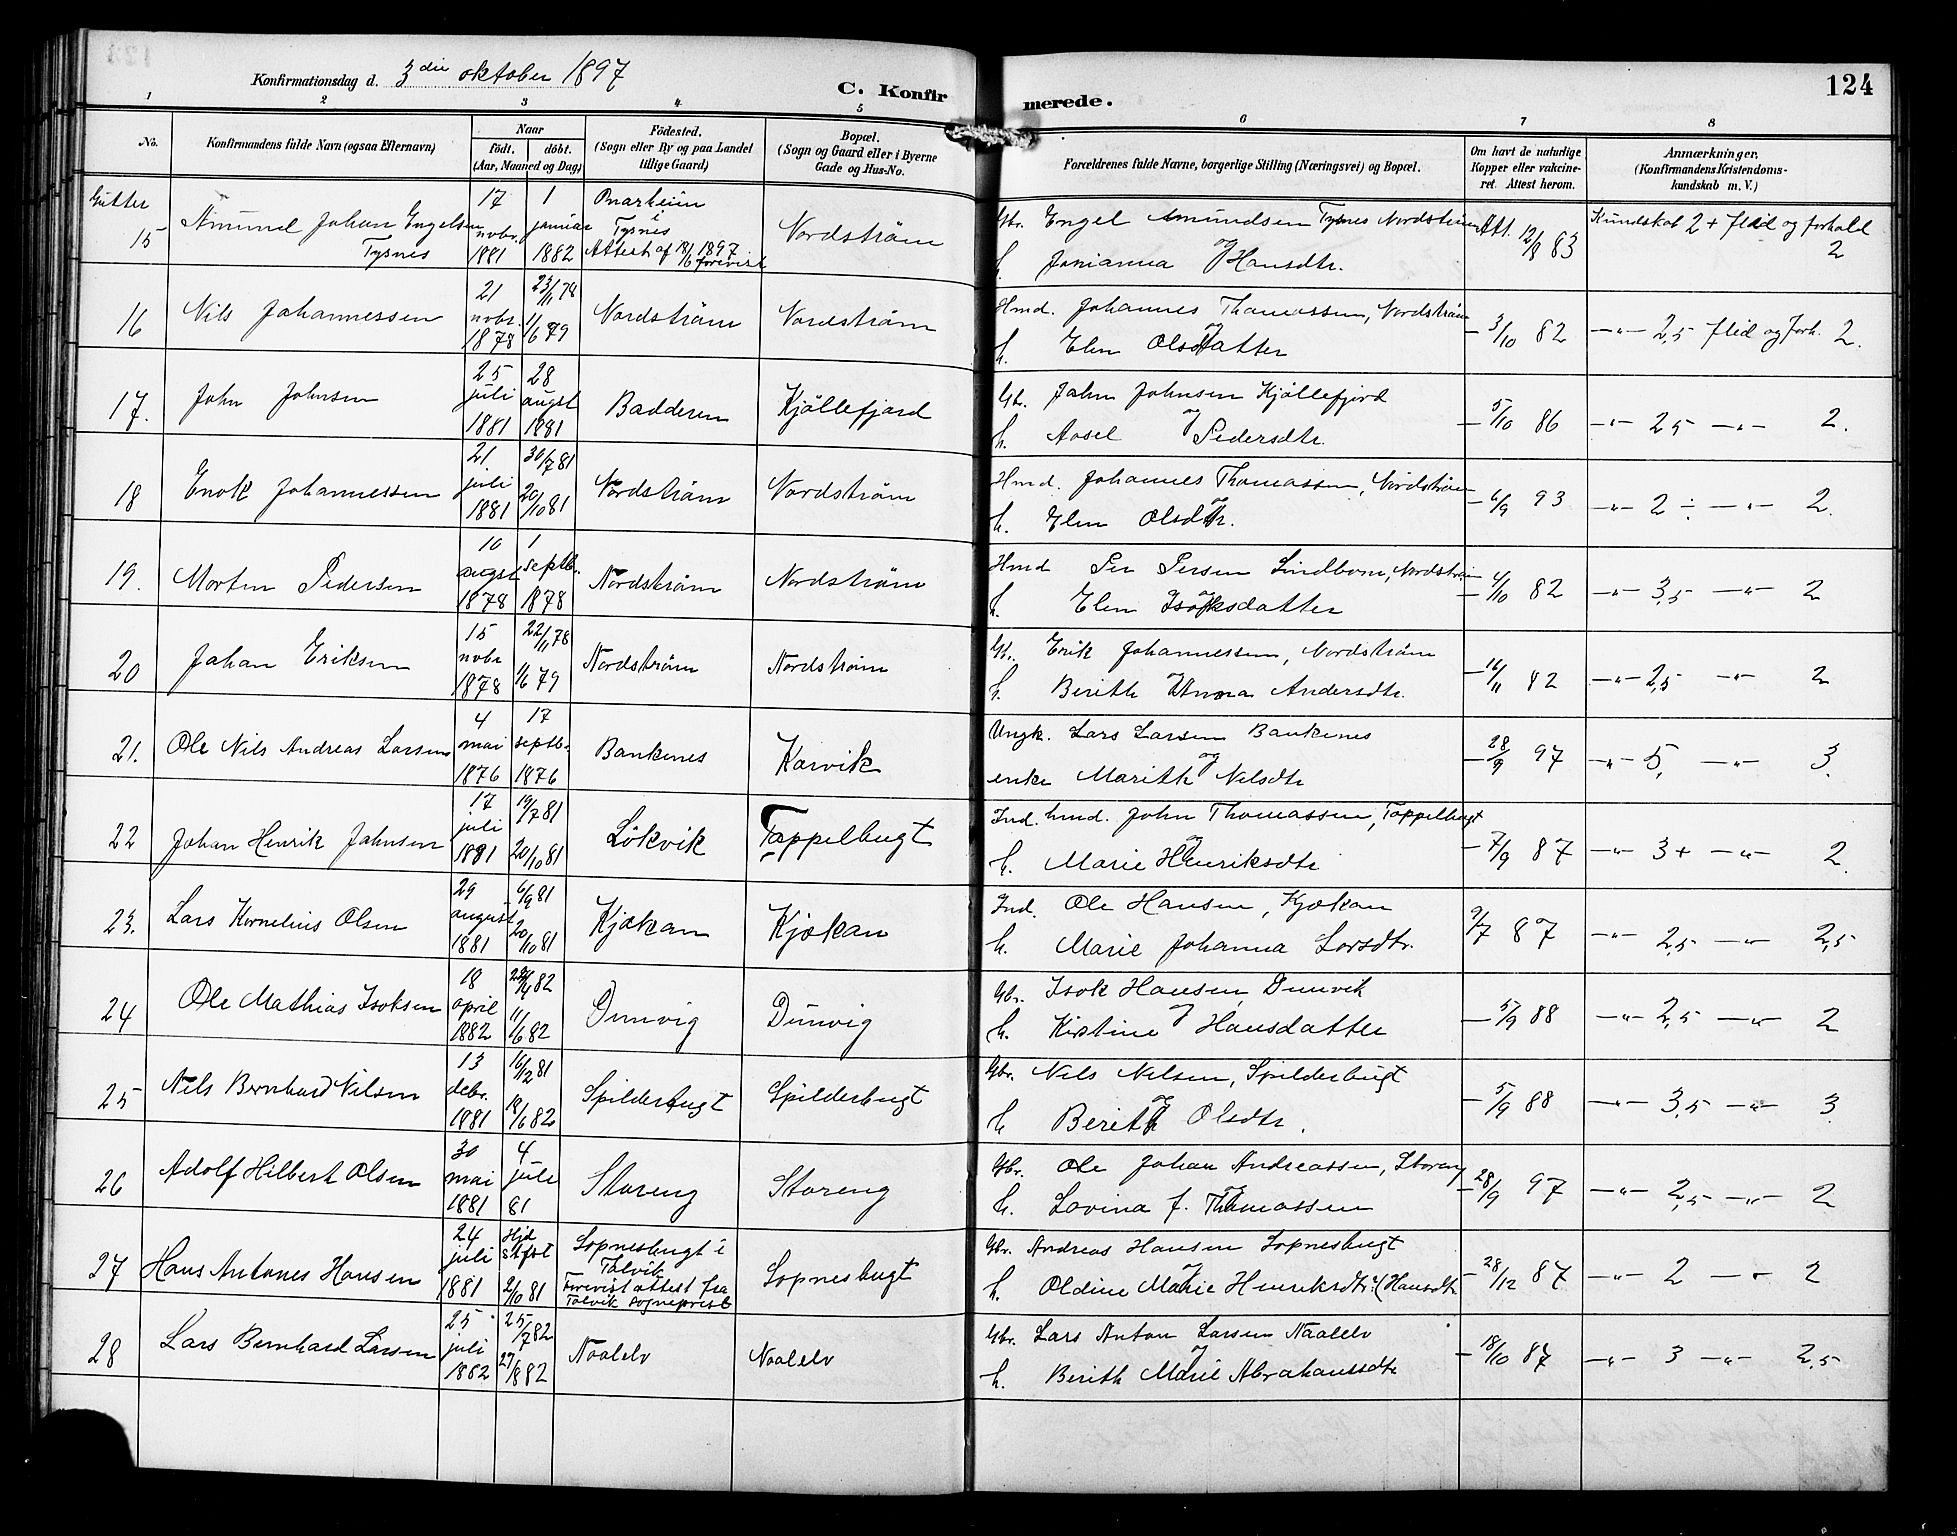 Konfirmationsdag d. 3die oktober 1897
C. Konfirmerede.
124
1 2 3 4 5 6 7 8
No.
Konfirmandens fulde Navn (ogsaa Efternavn)
Naar
født. døbt.
(Aar, Maaned og Dag)
Fødested.
(Sogn eller By og paa Landet
tillige Gaard)
Bopæl.
(Sogn og Gaard eller i Byerne
Gade og Hus-No.
Forældrenes fulde Navne, borgerlige Stilling (Næringsvei) og Bopæl.
Om havt de naturlige
Kopper eller vakcine-
ret. Attest herom.
Anmærkninger.
(Konfirmandens Kristendoms-
kundskab m. V.)
Gutter
15 Amund Johan Engelsen
Tysnes
17 novbr. 1881
1 januar 1882
Onarheim i Tysnes
Attest af 18/6 1897 forevist
Nordstrøm
Gbr. Engel Amundsen Tysnes Nordstrøm
og
h. Jonianna Hansdtr.
Att. 12/8 83
Kundskab 2+ flid og forhold 2
16 Nils Johannessen
21 novbr. 1878
23/11 78 11/6 79
Nordstrøm
Nordstrøm
Hmd. Johannes Thomassen, Nordstrøm
og
h. Elen Olsdatter
— 3/10 82
—"— 2,5 flid og Forh. 2.
17. John Johnsen
25 juli 1881
28 augst 1881
Badderen
Kjøllefjord
Gbr. John Johnsen Kjøllefjord
og
h. Aosel Pedersdtr.
— 5/10 86
—"— 2,5 —"— 2.
18 Enok Johannessen
21 juli 1881
30/7 81 20/10 81
Nordstrøm
Nordstrøm
Hmd. Johannes Thomassen, Nordstrøm
og
h. Elen Olsdtr.
— 6/9 93
—"— 2 ÷ —"— 2.
19. Morten Pedersen
10 augst 1878
1 septb. 1878
Nordstrøm
Nordstrøm
Hmd Per Persen Lindbom, Nordstrøm
og
h. Elen Isaksdatter
— 4/10 82
—"— 3,5 —"— 2
20 Johan Eriksen
15 novbr 1878
22/11 78 1/6 79
Nordstrøm
Nordstrøm
Gbr. Erik Johannessen, Nordstrøm
og
h. Berith Anna Andersdtr.
— 16/11 82
—"— 2,5 —"— 2
21. Ole Nils Andreas Larsen
4 mai 1876
17 septb. 1876
Bankenes
Karvik
Ungk. Lars Larsen Bankenes
og
enke Marith Nilsdtr
— 28/9 97
—"— 5, —"— 3.
22 Johan Henrik Johnsen
17 juli 1881
19/7 81 20/10 81
Løkvik
Tappelbugt
Ind. hmd. John Thomassen, Tappelbugt
og
h. Marie Henriksdtr
— 7/9 87
—"— 3+ —"— 2.
23. Lars Kornelius Olsen
29 august 1881
6/9 81 20/10 81
Kjækan
Kjækan
Ind. Ole Hansen, Kjækan
h. Marie Johanna Larsdtr.
9/7 87
—"— 2,5 —"— 2,5
24 Ole Mathias Isaksen
18 april 1882
11/6 82
Dunvig
Dunvig
Gbr. Isak Hansen, Dunvik
og
h. Kirstine Hansdatter
— 5/9 88
—"— 2,5 —"— 2
25 Nils Bernhard Nilsen
13 debr. 1881
16/12 81 18/6 82
Spilderbugt
Spilderbugt
Gbr. Nils Nilsen, Spilderbugt
og
h Berith Olsdtr.
— 5/9 88
—"— 3,5 —"— 3.
26 Adolf Hilbert Olsen
30 mai 1881
4 jule 81
Storeng
Storeng
Gbr. Ole Johan Andreassen, Storeng
og
h. Lovina f. Thomassen
— 28/9 97
—"— 2,5 —"— 2
27 Hans Antones Hansen
24 juli 1881
Hjd. 2/10 81
Sopnesbugt i Talvik
Forevist attest fra
Talvik sogneprest
Sopnesbugt
Gbr. Andreas Hansen Sopnesbugt
og
h. Oldine Marie Henriksdtr. (Hansdtr
— 28/12 87
—"— 2 —"— 2
28 Lars Bernhard Larsen
25 juli 1882
25/7 82 27/8 82
Naalelv
Naalelv
Gbr. Lars Anton Larsen Naalelv
og
h. Berith Marie Abrahamsdtr
— 18/10 87
—"— 3 —"— 2,5